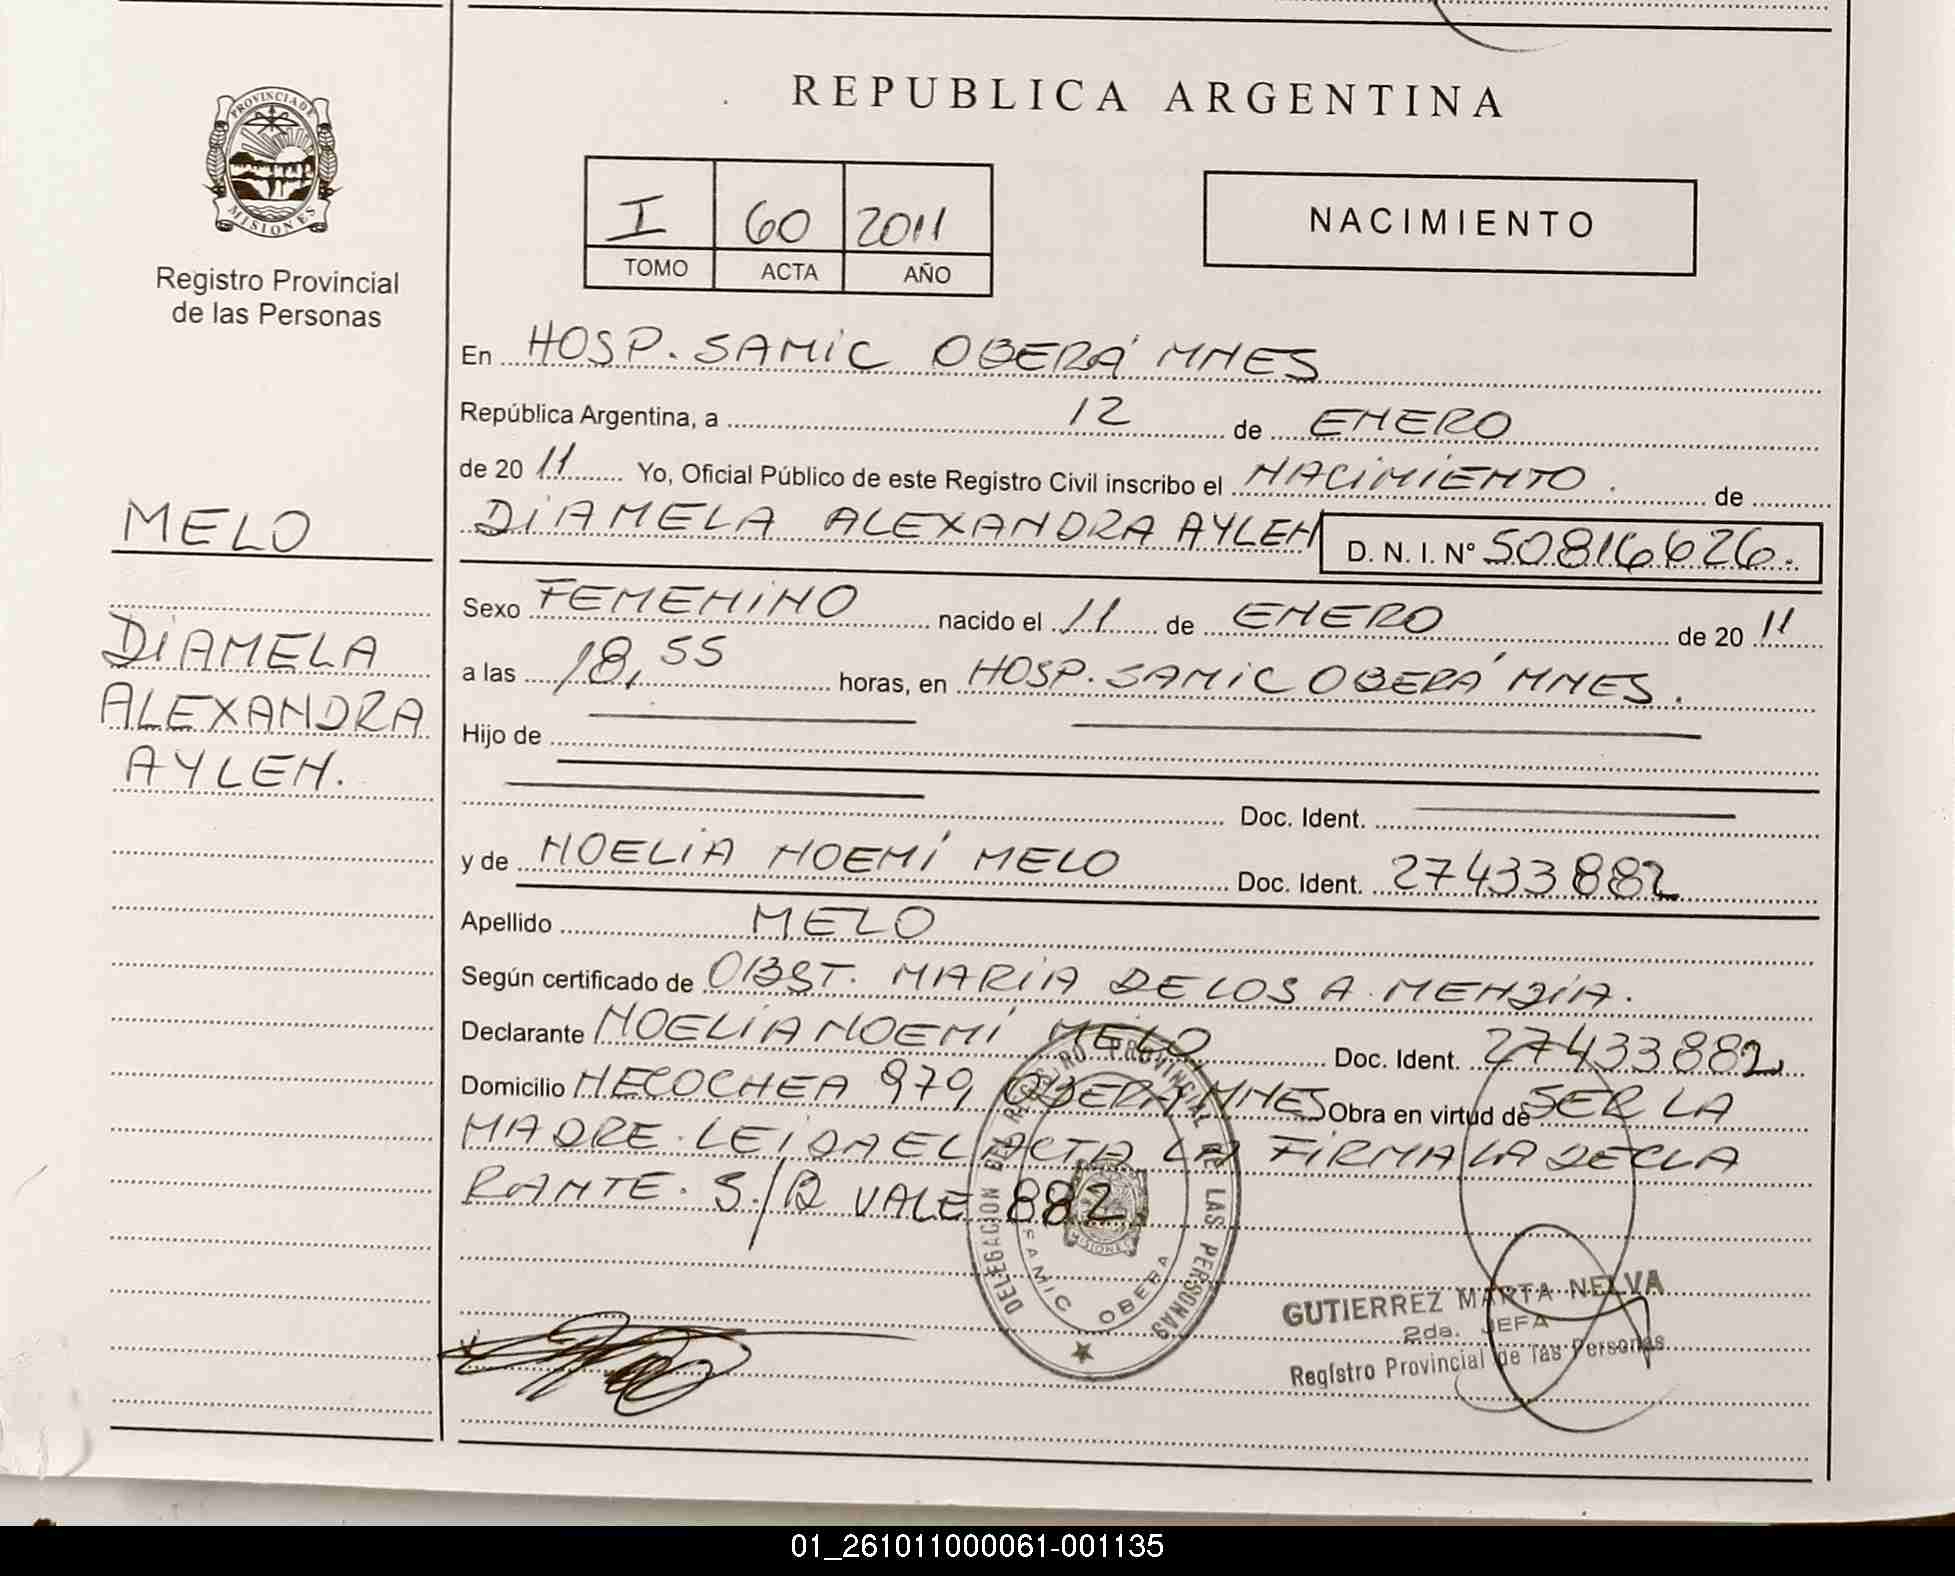 REPUBLICA ARGENTINA
PROVINCIA DE
MISIONES
Registro Provincial
de las Personas
I 60 2011
TOMO ACTA AÑO
NACIMIENTO
En HOSP. SAMIC OBERÁ MNES
República Argentina, a 12 de ENERO
de 2011 Yo, Oficial Público de este Registro Civil inscribo el NACIMIENTO. de
DIAMELA ALEXANDRA AYLEN D. N. I. N° 50816626.
MELO
DIAMELA
ALEXANDRA
AYLEN.
Sexo FEMENINO nacido el 11 de ENERO de 2011
a las 18,55 horas, en HOSP. SAMIC OBERÁ MNES.
Hijo de
Doc. Ident.
y de NOELIA NOEMÍ MELO Doc. Ident. 27433882
Apellido MELO
Según certificado de OBST. MARIA DE LOS A. MENDIA.
Declarante NOELIA NOEMÍ MELO, Doc. Ident. 27433882,
Domicilio NECOCHEA 979, OBERÁ MNES Obra en virtud de SER LA
MADRE. LEIDA EL ACTA LA FIRMA LA DECLA
RANTE. S/R VALE 882.
DELEGACION DEL REGISTRO PROVINCIAL DE LAS PERSONAS
SAMIC OBERA
MISIONES
GUTIERREZ MARTA NELVA
2da. JEFA
Registro Provincial de las Personas
01_261011000061-001135